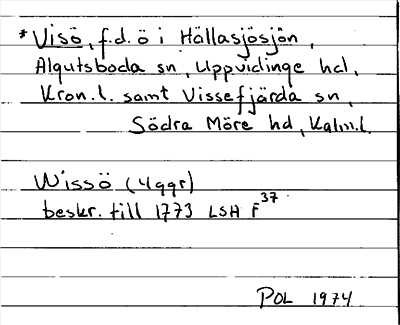 * Visö, f.d. ö i Höllasjösjön,
Algutsboda sn, Uppvidinge hd,
Kron.l. samt Vissefjärda sn,
Södra Möre hd, Kalm.l.
Wissö (4 ggr)
beskr. till 1773 LSA F37
POL 1974